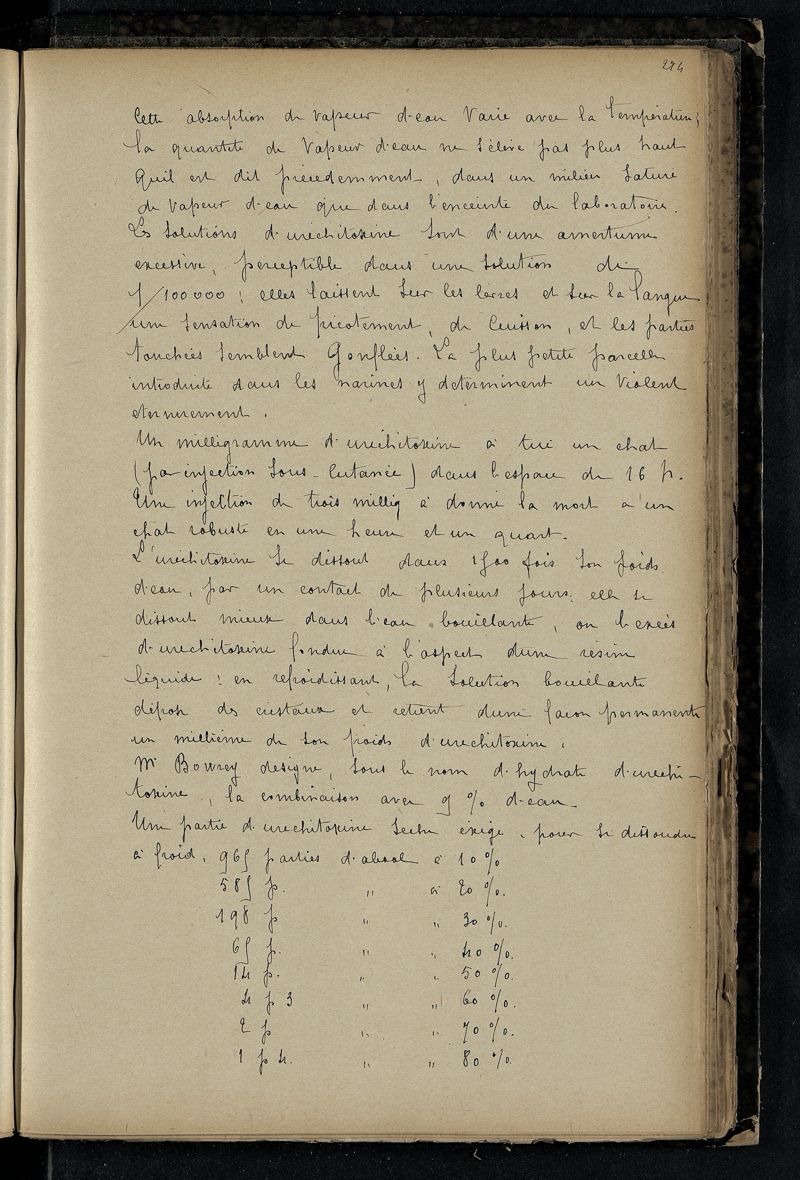 274
Cette absorption de vapeur d'eau varie avec la température;
la quantité de vapeur d'eau ne s'élève pas plus haut
qu'il est dit précedemment, dans un milieu saturé
de vapeur d'eau que dans l'enceinte du laboratoire.
Les solutions d'uréchitoxine sont d'une amertume
excessive, perceptible dans une solution de
1/100000; elles laissent sur les levres et sur la langue
une sensation de picotement, de cuisson, et les parties
touchées semblent gonflées. La plus petite parcelle
introduite dans les narines y determinent un violent
eternurement.
Un milligramme d'uréchitoxine a tué un chat
(par injection sous-cutanée) dans l'espace de 16 h.
Une injection de trois millig a donné la mort a un
chat robuste en une heure et un quart.
L'uréchitoxine se dissout dans 1500 fois son poids
d'eau, par un contact de plusieurs jours. elle se
dissout mieux dans l'eau bouillante, ou l'excès
d'urechitoxine fondue a l'aspect d'une resine
liquide: en refroidissant, la solution bouillante
dépose des cristaux et retient d'une façon permanente
un millième de son poids d'urechitoxine.
Mr Bowrey designe, sous le nom d'hydrate d'uréchi-
toxine, la combinaison avec 9 % d'eau.
Une partie d'urechitoxine seche exige, pour se dissoudre
à froid, 965 parties d'alcool à 10 %
585 p. " à 20 %.
198 p " " 30 %.
65 p. " " 40 %.
14 p. " " 50 %.
4 p 3 " " 60 %.
2 p " " 70 %.
1 p 4. " " 80 %.